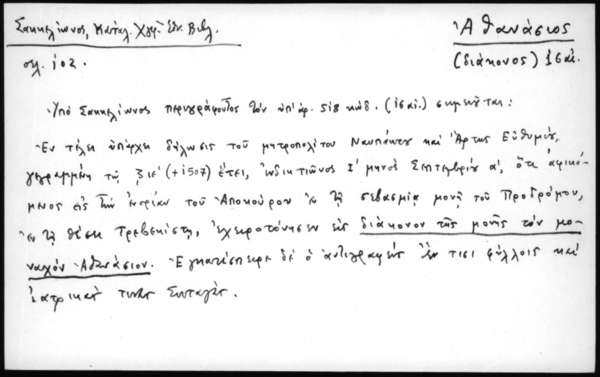 Σακκελίωνος, Κατάλ. Χγρ. Ἐθν. Βιβλ.
σελ. 102.
Ἀθανάσιος
(διάκονος) 16 αἰ.
Ὑπὸ Σακκελίωνος περιγράφοντος τὸν ὑπ' ἀρ. κώδ. (16 αἰ.) σημειοῦται:
Ἐν τέλει ὑπάρχει δήλωσις τοῦ μητροπολίτου Ναυπάκτου καὶ Ἄρτης Εὐθυμίου,
γεγραμμένη τῷ ͵ζιϛ' (+1507) ἔτει, ἰνδικτιῶνος Ι' μηνὸς Σεπτεμβρίῳ α', ὅτι ἀφικό-
μενος εἰς τὴν ἐνορίαν τοῦ Ἀποκούρου ἐν τῇ σεβασμίᾳ μονῇ τοῦ Προδρόμου,
ἐν τῇ θέσει, ἐχειροτόνησεν εἰς διάκονον τῆς μονῆς τὸν μο-
ναχὸν Ἀθανάσιον. Ἐγκατέσπειρε δὲ ὁ ἀντιγραφεὺς ἔν τισι φύλλοις καὶ
ἰατρικάς τινας συνταγάς.